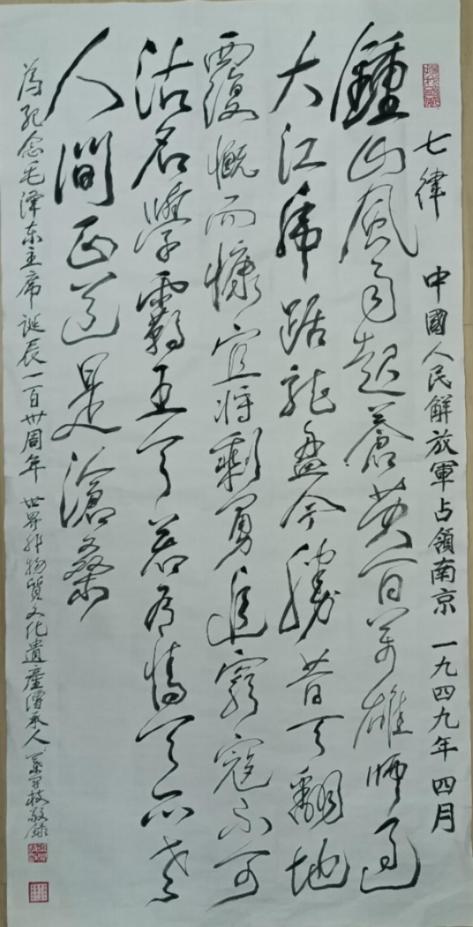 七律 中國人民解放軍占領南京 一九四九年四月
鍾山風雨起蒼黄百萬雄師過
大江虎踞龍盘今勝昔天翻地
覆慨而慷宜將剩勇追窮寇不可
沽名學霸王天若有情天亦老
人間正道是滄桑
為紀念毛澤东主席誕辰一百卅周年 世界非物質文化遺產傳承人 敬録